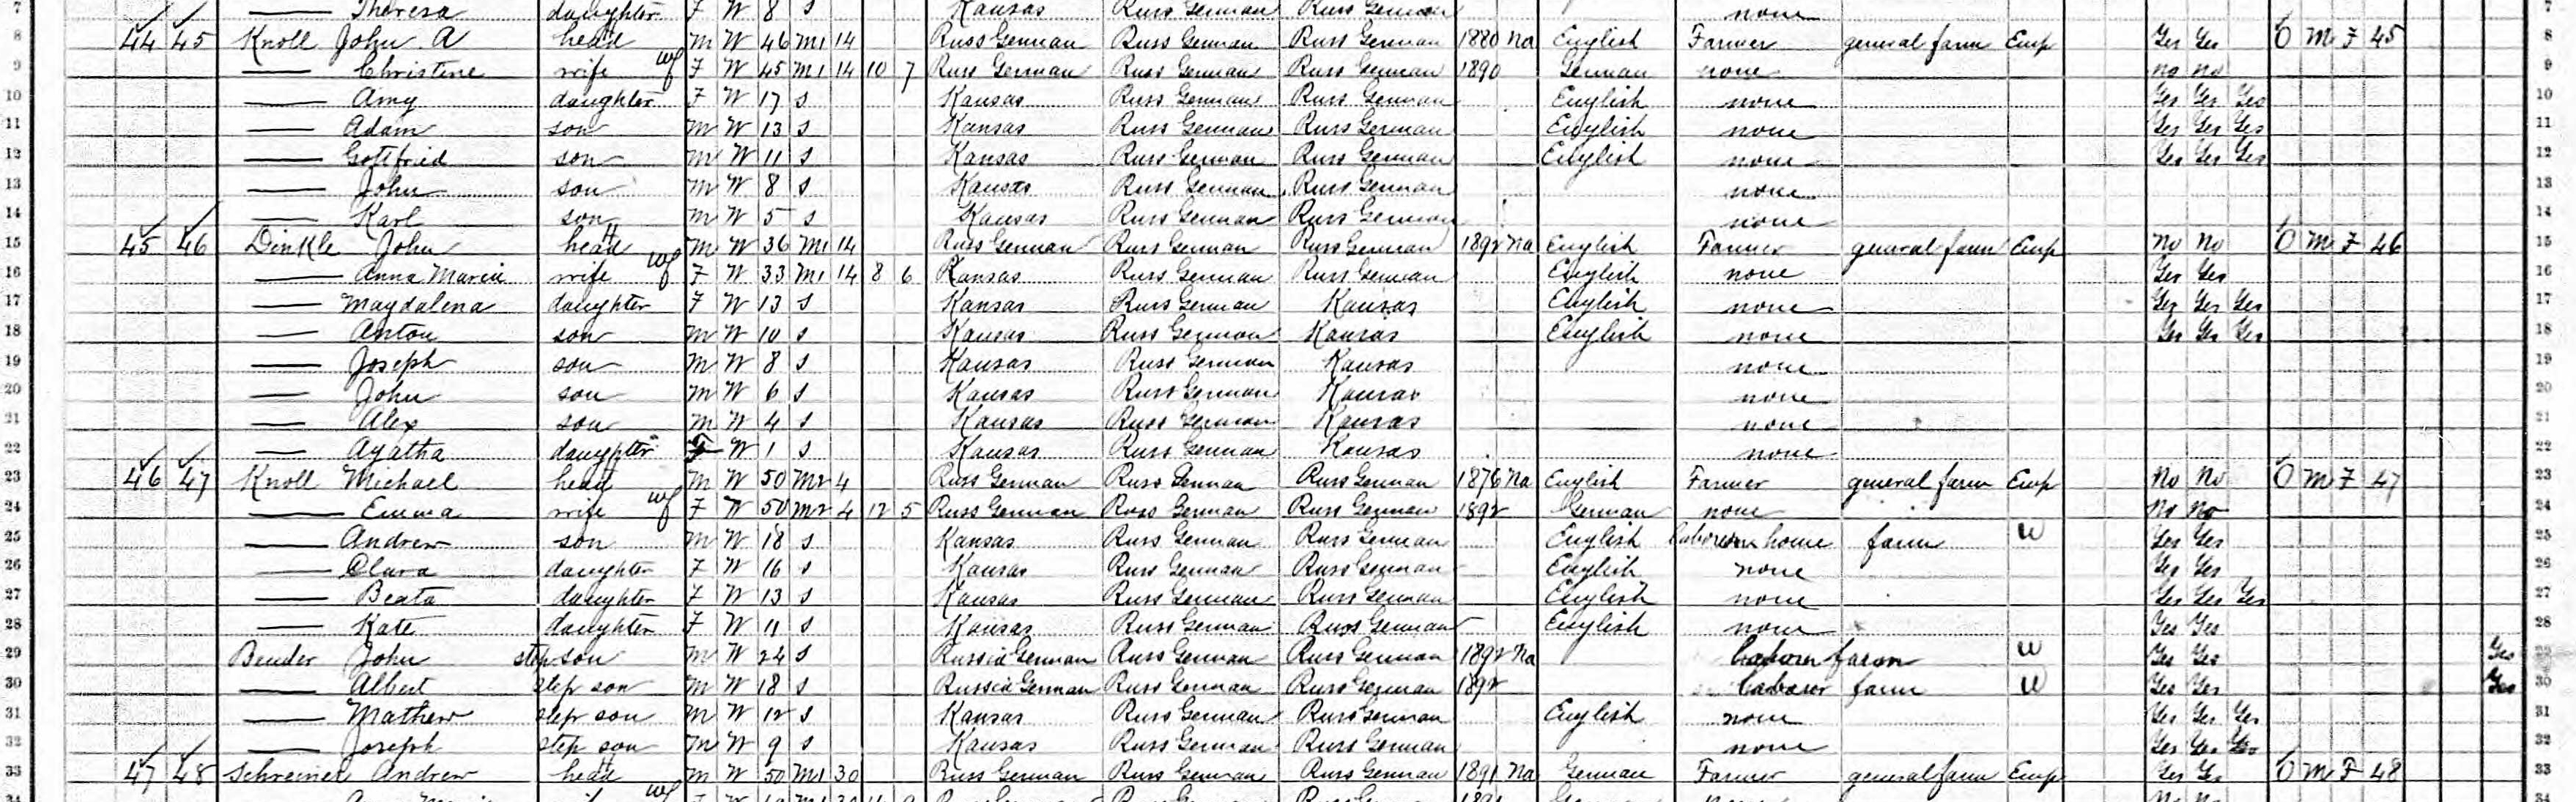 7 Theresa daughter F W 8 S Kansas Russ German Russ German none 7
8 44 45 Knoll John A head M W 46 M1 14 Russ German Russ German Russ German 1880 Na English Farmer general farm Emp Yes Yes O M F 45 8
9 Christine wife F W 45 M1 14 10 7 Russ German Russ German Russ German 1890 German none no no 9
10 Amy daughter F W 17 S Kansas Russ German Russ German English none Yes Yes Yes 10
11 Adam son M W 13 S Kansas Russ German Russ German English none Yes Yes Yes 11
12 Gottfried son M W 11 S Kansas Russ German Russ German English none Yes Yes Yes 12
13 John son M W 8 S Kansas Russ German Russ German none 13
14 Karl son M W 5 S Kansas Russ German Russ German none 14
15 45 46 Dinkle John head M W 36 M1 14 Russ German Russ German Russ German 1892 Na English Farmer general farm Emp No No O M F 46 15
16 Anna Maria wife F W 33 M1 14 8 6 Kansas Russ German Russ German English none Yes Yes 16
17 Magdalena daughter F W 13 S Kansas Russ German Kansas English none Yes Yes Yes 17
18 Anton son M W 10 S Kansas Russ German Kansas English none Yes Yes Yes 18
19 Joseph son M W 8 S Kansas Russ German Kansas none 19
20 John son M W 6 S Kansas Russ German Kansas none 20
21 Alex son M W 4 S Kansas Russ German Kansas none 21
22 Agatha daughter F W 1 S Kansas Russ German Kansas none 22
23 46 47 Knoll Michael head M W 50 M2 4 Russ German Russ German Russ German 1876 Na English Farmer general farm Emp No No O M F 47 23
24 Emma wife F W 50 M2 4 12 5 Russ German Russ German Russ German 1892 German none No No 24
25 Andrew son M W 18 S Kansas Russ German Russ German English home farm W Yes Yes 25
26 Clara daughter F W 16 S Kansas Russ German Russ German English none Yes Yes 26
27 Beata daughter F W 13 S Kansas Russ German Russ German English none Yes Yes Yes 27
28 Kate daughter F W 11 S Kansas Russ German Russ German English none Yes Yes 28
29 Bender John step son M W 24 S Russia German Russ German Russ German 1892 Na farm W Yes Yes Yes 29
30 Albert step son M W 18 S Russia German Russ German Russ German 1892 Laboror farm W Yes Yes Yes 30
31 Mathew step son M W 12 S Kansas Russ German Russ German English none Yes Yes Yes 31
32 Joseph step son M W 9 S Kansas Russ German Russ German none Yes Yes Yes 32
33 47 48 Schreiner Andrew head M W 50 M1 30 Russ German Russ German Russ German 1891 Na German Farmer general farm Emp Yes Yes O M F 48 33